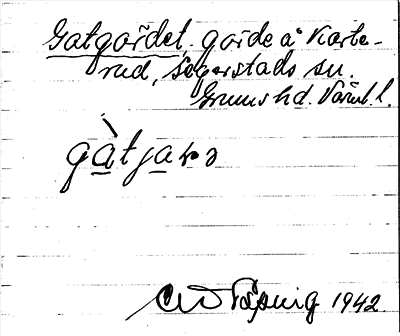 Gatgärdet, gärde å Karte-
rud, Segerstads sn.
Grums hd. Värml. l.
gàtjarə
1942